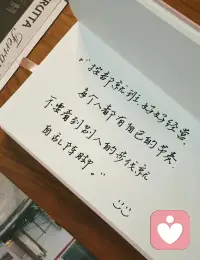 "按部就班 好好经营.
每个人都有自己的节奏.
不要看到别人的步伐就
自乱阵脚."
RUTTA